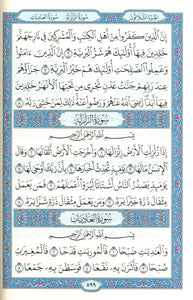 الجُزءُ الثَّلَاثُونَ سُورَةُ الزَّلْزَلَة سُورَةُ العَادِيَات
إِنَّ ٱلَّذِينَ كَفَرُوا۟ مِنْ أَهْلِ ٱلْكِتَٰبِ وَٱلْمُشْرِكِينَ فِى نَارِ جَهَنَّمَ
خَٰلِدِينَ فِيهَآ أُو۟لَٰٓئِكَ هُمْ شَرُّ ٱلْبَرِيَّةِ ٦ إِنَّ ٱلَّذِينَ ءَامَنُوا۟
وَعَمِلُوا۟ ٱلصَّٰلِحَٰتِ أُو۟لَٰٓئِكَ هُمْ خَيْرُ ٱلْبَرِيَّةِ ٧
جَزَآؤُهُمْ عِندَ رَبِّهِمْ جَنَّٰتُ عَدْنٍ تَجْرِى مِن تَحْتِهَا ٱلْأَنْهَٰرُ خَٰلِدِينَ
فِيهَآ أَبَدًا رَّضِىَ ٱللَّهُ عَنْهُمْ وَرَضُوا۟ عَنْهُ ذَٰلِكَ لِمَنْ خَشِىَ رَبَّهُۥ ٨
سُورَةُ الزَّلْزَلَة
بِسْمِ ٱللَّهِ ٱلرَّحْمَٰنِ ٱلرَّحِيمِ
إِذَا زُلْزِلَتِ ٱلْأَرْضُ زِلْزَالَهَا ١ وَأَخْرَجَتِ ٱلْأَرْضُ أَثْقَالَهَا ٢ وَقَالَ
ٱلْإِنسَٰنُ مَا لَهَا ٣ يَوْمَئِذٍ تُحَدِّثُ أَخْبَارَهَا ٤ بِأَنَّ رَبَّكَ أَوْحَىٰ لَهَا ٥
يَوْمَئِذٍ يَصْدُرُ ٱلنَّاسُ أَشْتَاتًا لِّيُرَوْا۟ أَعْمَٰلَهُمْ ٦ فَمَن يَعْمَلْ
مِثْقَالَ ذَرَّةٍ خَيْرًا يَرَهُۥ ٧ وَمَن يَعْمَلْ مِثْقَالَ ذَرَّةٍ شَرًّا يَرَهُۥ ٨
سُورَةُ العَادِيَات
بِسْمِ ٱللَّهِ ٱلرَّحْمَٰنِ ٱلرَّحِيمِ
وَٱلْعَٰدِيَٰتِ ضَبْحًا ١ فَٱلْمُورِيَٰتِ قَدْحًا ٢ فَٱلْمُغِيرَٰتِ
صُبْحًا ٣ فَأَثَرْنَ بِهِۦ نَقْعًا ٤ فَوَسَطْنَ بِهِۦ جَمْعًا ٥
٥٩٩